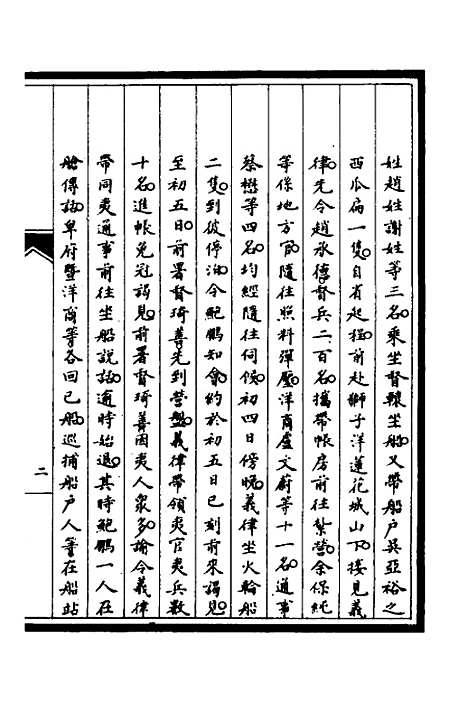 姓趙姓謝姓等三名乘坐督轅坐船又帶船户吳亞裕之
西瓜扁一隻自省起椗前赴獅子洋蓮花城山下接見義
律先令趙承德督兵二百名攜帶帳房前往紮營余保純
等係地方官隨往照料彈壓洋商盧文蔚等十一名通事
蔡懋等四名均經隨往伺候初四日傍晚義律坐火輪船
二隻到彼停泊令鮑鵬知會約於初五日巳刻前來謁見
至初五日前署督琦善先到營盤義律帶領夷官夷兵數
十名進帳免冠謁見前署督琦善因夷人衆多諭令義律
帶同夷通事前往坐船說話逾時始退其時鮑鵬一人在
艙傳話卑府暨洋商等各回已船巡捕船户人等在船站
二